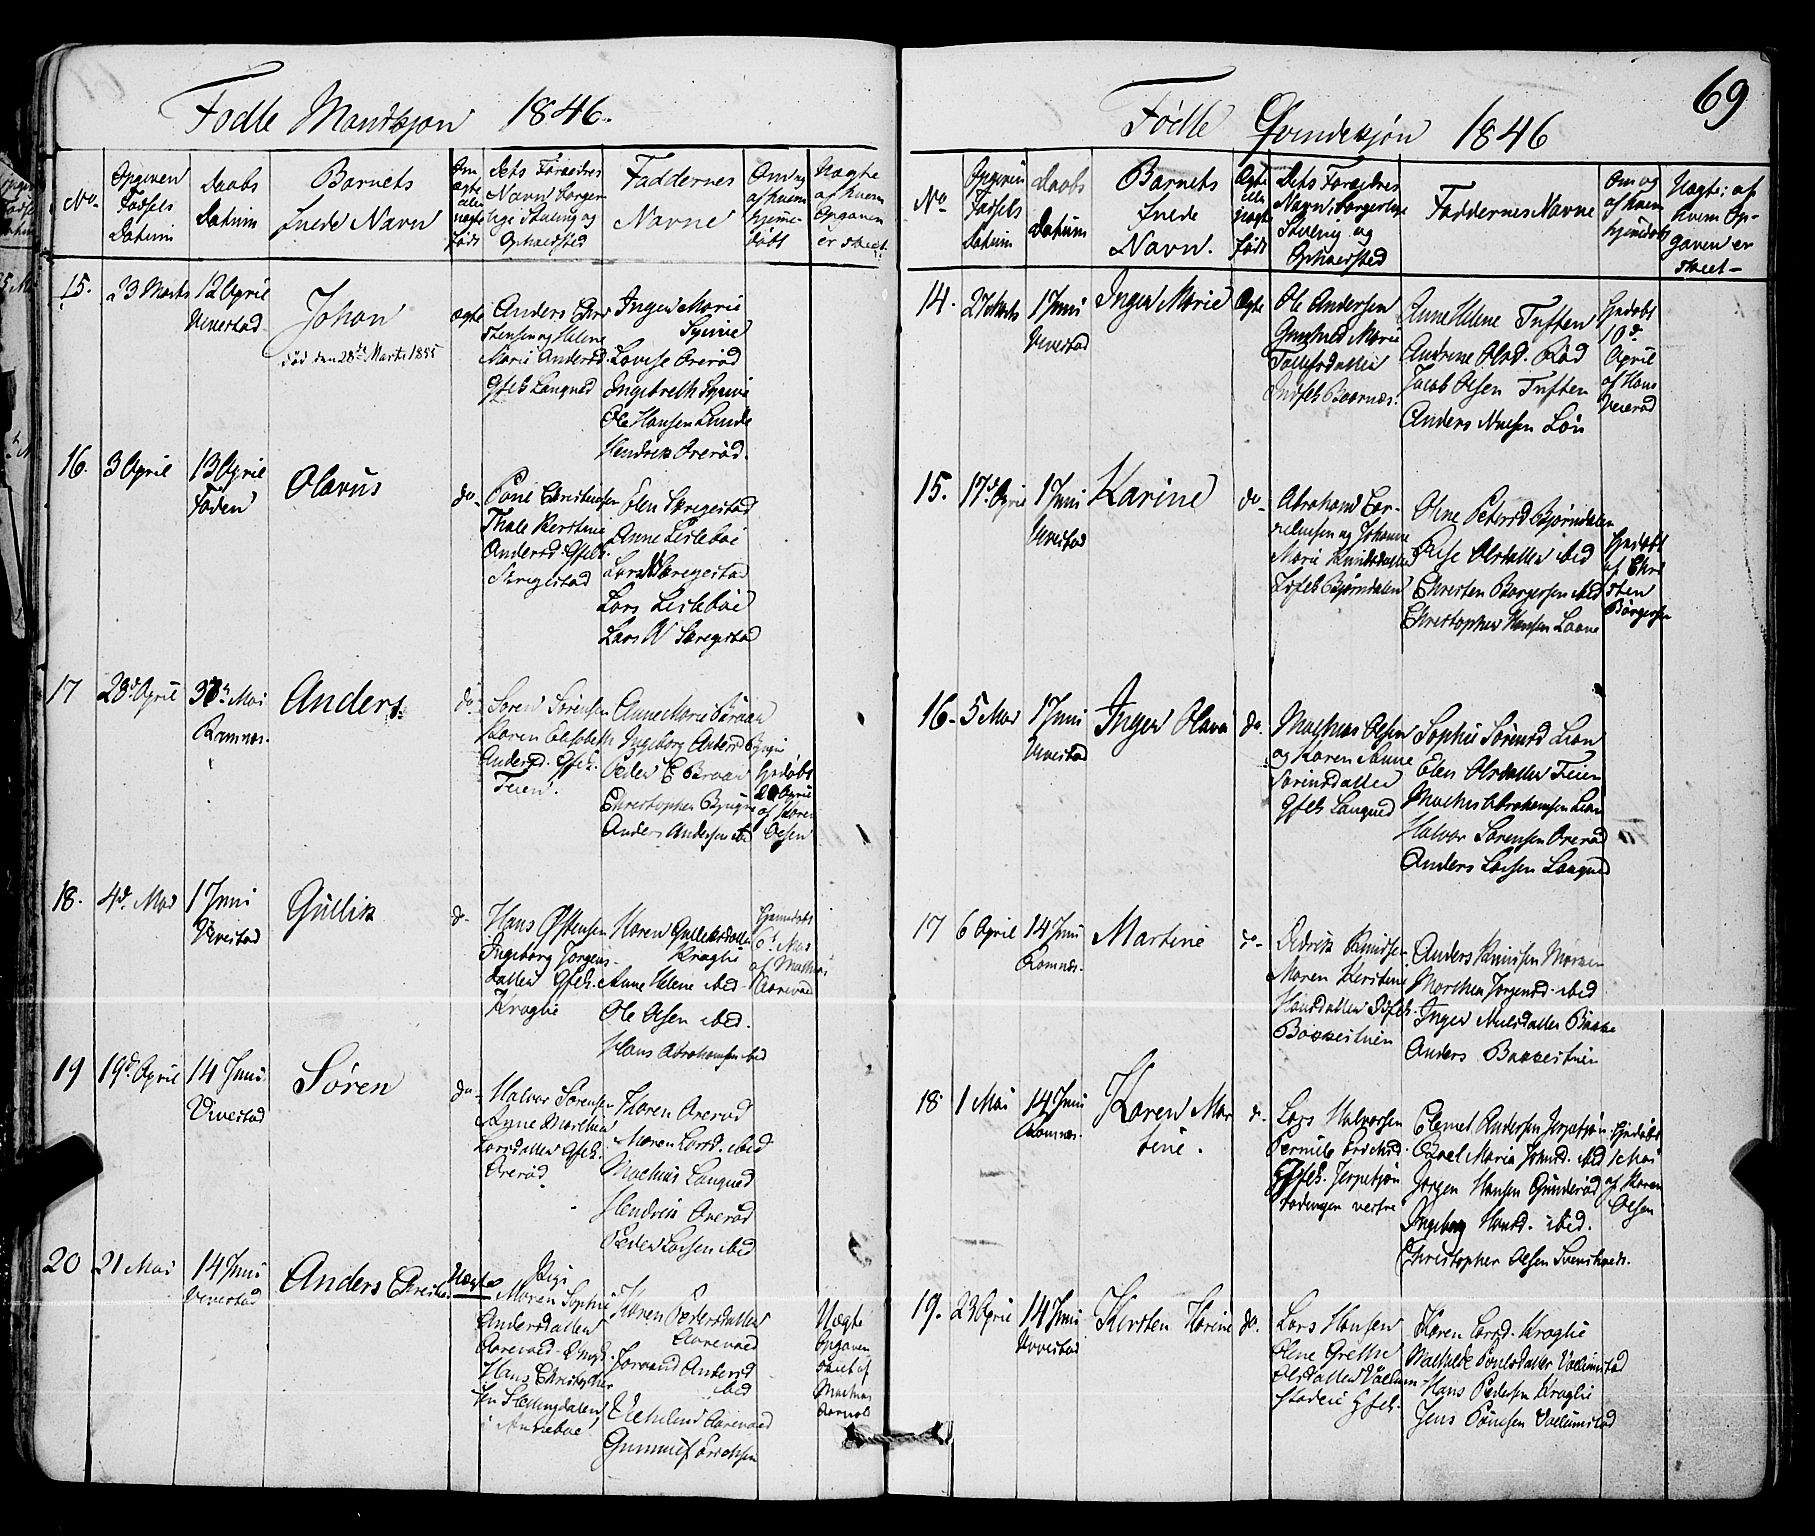 Fødte Mandkjøn 1846.
No
Opgiven Fødsels Datum
Daabs Datum
Barnets fulde Navn
Om ægte eller uægte født
Dets Forældres Navn, borgerlige Stilling og Opholdsted
Faddernes Navne
Om og af hvem hjemedøbt
Uægte af hvem Opgaven er skeet
15.
23 Marts
12 April
Vivestad
Johan
død den 28de Marts 1855
ægte
Anders Chri
stensen og Helene
Marie Andersd.
Gfsk. Langned
Inger Marie
Lovise Ørerød
Ingebreth
Ole Hansen Lunde
Hendrik Ørerød.
16.
3 April
13 April
Foden
Olavus
do-
Poul Christensen
Thale Kerstine
Andersd. Gfsk.
Skregestad
Elen Skregestad
Anne Lisleboe
Lars Skregestad
Lars Lisleboe
Lars N Skregestad
17
28d April
Mai
Ramnæs.
Anders
do-
Søren Sørensen
Karen Elisabeth
Andersd. Gfsk.
Feien.
Anne Marie Braar
Ingeborg Andersd
Peder E Braar
Christopher
Anders Andersen ibd
Hjdøbt
April
af Karen
Olsen
18.
4d. Mai
1 Juni
Vivestad
Gullik
d-
Hans Østensen
Ingeborg Jørgens-
datter Gfsk.
Kraglie
Maren Gulliksdatter
Kraglie
Anne Helene ibid-
Ole Olsen ibid.
Hans Abrahamsen ibid
Hjemdøbt
6d. Mai
af Mathias
Aarevaed
19
19d. April
14 Juni
Vivestad
Søren
do-
Halvor Sørensen
Anne Marthea
Larsdatter Gfsk.
Ørerød
Karen Ørerød
Maren Larsd. ibid
Mathias Langned
Hendrik Ørerød
Peder Larsen ibid
20
21 Mai
14 Juni
Vivestad
Anders Christi
Uægte
Pige
Maren Sophie
Andersdatter
Aarevaed
Hans Christopher
sen
i Andebue
Karen Pedersdatter
Aarevaed
Andersd
ibid
Aarevaed
Gunnuf Erichsen
Uægte
Opgaven
skeet af
Mathias
Fødte Qvindekjøn 1846
69
No
Opgiven Fødsels Datum
Daabs Datum
Barnets fulde Navn.
Ægte eller uægte født
Dets Forældres Navn, borgerlige Stilling og Opholdsted
Faddernes Navne
Om og af hvem hjemdøbt
Uægte: af hvem Opgaven er skeet-
14.
27 Marts
1 Juni
Vivestad
Inger Marie
Ægte
Ole Andersen
Gunhild Marie
Tollefsdatter
Indfsk. Bornæs.
Anne Helene Tuften
Andrine Olsd. Rød
Jacob Olsen Tuften
Anders Nielsen Løn
Hjdøbt
10d
April
af Hans
Veierød
15.
17d April
1 Juni
Vivestad
Karine
do-
Abraham Cor-
neliusen og Johanne
Marie Knudsdatter
Bjørndalen
Oline Petersd Bjørndalen
Else Olsdatter ibid
Christen Borgersen ibid
Christopher Hansen Laane
Hjdøbt
af Chri
sten
Børgersen
16-
5 Mai
1 Juni
Vivestad
Inger Olava
do.
Mathias Olsen
og Karen Anne
Sørensdatter
Gfsk Langned
Sophie Sørensd Lian
Elen Olsdatter Feien
Mathis Abrahamsen Lian
Halvor Sørensen Ørerød
Anders Larsen Langned
17
6 April
14 Juni
Ramnæs.
Martine
do-
Didrik Knudsen
Maren Kerstine
Hansdatter Gfsk.
Bakkestuen
Anders Knudsen
Marthea Jørgensd. ibid
Inger Nielsdatter Bakke
Anders Bakkestuen
18
1 Mai
14 Juni
Ramnæs.
Karen Mar
tine.
d.
Lars Halvorsen
Pernille Erichsd.
Gfsk. Jerpetjøn
rødningen vestre
Clemet Andersen Jerpetjøn
Maria Johnsd. ibid
Jørgen Hansen Gunderød
Ingeborg Hansd. ibid.
Christopher Olsen
Hjdøbt
1 Mai
af Karen
Olsen
19.
23 April
14 Juni
Vivestad
Kirsten Karine
do.
Lars Hansen
Olene Grethe
Olsdatter
Gfsk.
Karen Larsd. Kraglie
Mathilde Poulsdatter
Hans Pedersen Kraglie
Jens Poulsen